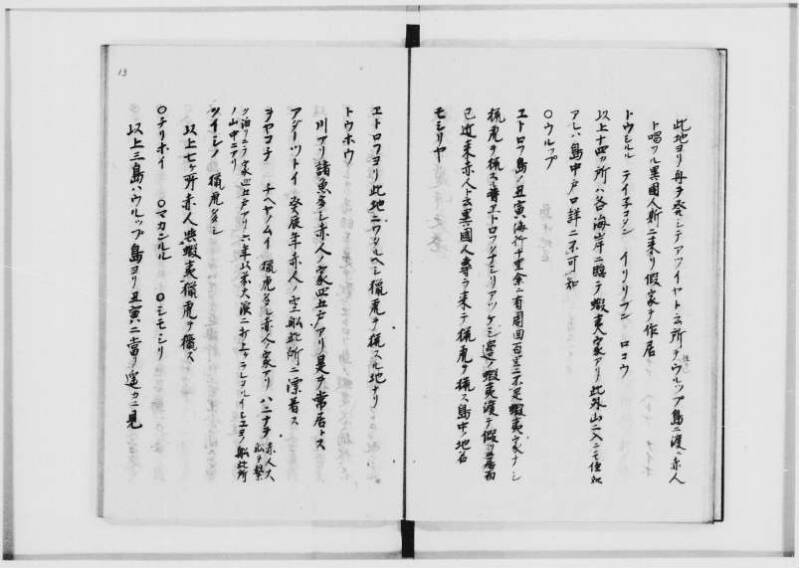 此地ヨリ舟ヲ発シテアフイヤト云所ヲウルップ島ニ渡ル赤人
ト唱フル異國人斯ニ来リ假家ヲ作居
トウシルル テイ子コタン イリリブシ ロコウ
以上十四ヶ所ハ各海岸ニ臨テ蝦夷人家アリ此外山ニ入ニモ住処
アレハ島中戸口詳ニ不可知
○ウルップ
エトロフ島ノ丑寅海行十里余ニ有周回百里ニ不足蝦夷人家ナシ
猟虎ヲ猟スル昔エトロフクナシリアツケシ邊ノ蝦夷渡テ假ニ居而
已近来赤人ト云異國人専ラ来テ猟虎ヲ猟ス島中ノ地名
モシリヤ
13
エトロフヨリ此地ニワタルヘシ猟虎ヲ猟スル地ナリ
トウホウ
川アリ諸魚多シ赤人ノ家四五戸アリ是ヲ常居トス
アタツトイ 癸辰年赤人ノ空船此所ニ漂着ス
ヲヤコチ チヘヤノムイ 猟虎多シ赤人ノ家アリ ハニナヲ 赤人大船ヲ繋
ノ山中ニアリ
ツイシノ 猟虎多シ
以上七ヶ所赤人與蝦夷猟虎ヲ猟ス
○チリホイ ○マカンルル ○シモシリ
以上三島ハウルップ島ヨリ丑寅ニ當リ遥カニ見